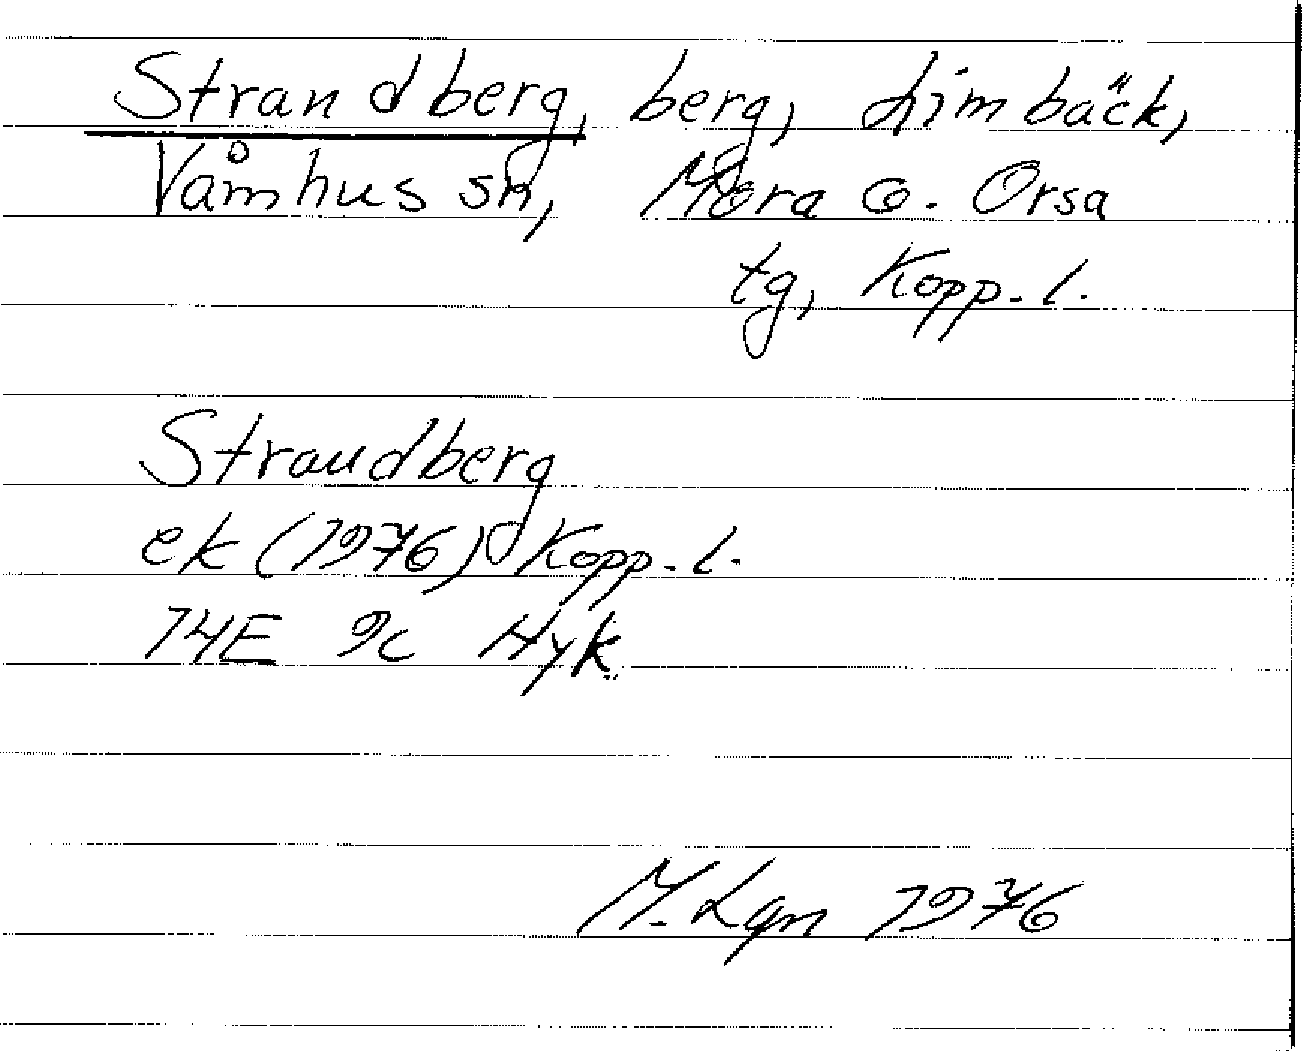 Strandberg, berg, Limbäck,
Våmhus sn, Mora o. Orsa
tg, Kopp. l.
Strandberg
ek (1976) Kopp. l.
14E 9c Hyk
M. Lgn 1976